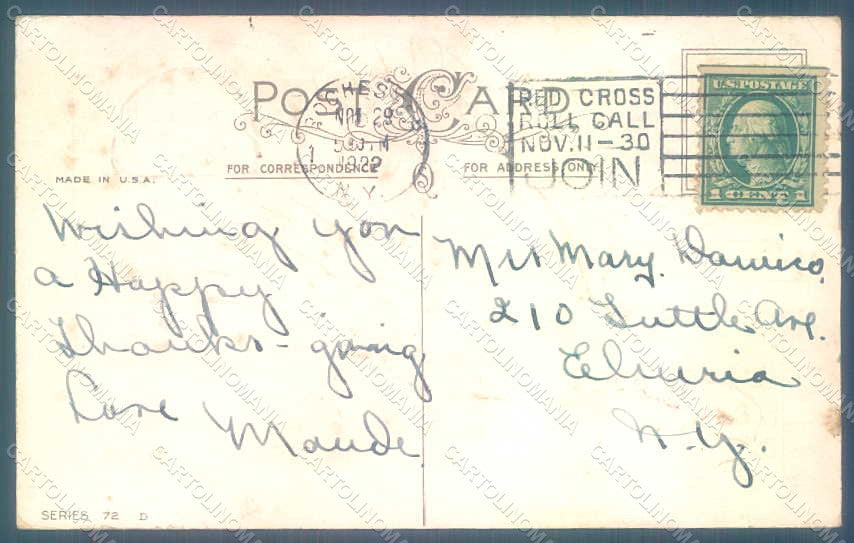 POST CARD
ROCHESTER
NOV 29
1922
N.Y.
RED CROSS
ROLL CALL
NOV. 11-30
JOIN
U.S. POSTAGE
1 CENT 1
FOR CORRESPONDENCE
FOR ADDRESS ONLY
MADE IN U.S.A.
Wishing you
a Happy
Thanks-giving
Love
Maude
Mrs Mary Damico,
210 Tuttle Ave.
Elmira
N.Y.
SERIES 72 D
CARTOLINOMANIA